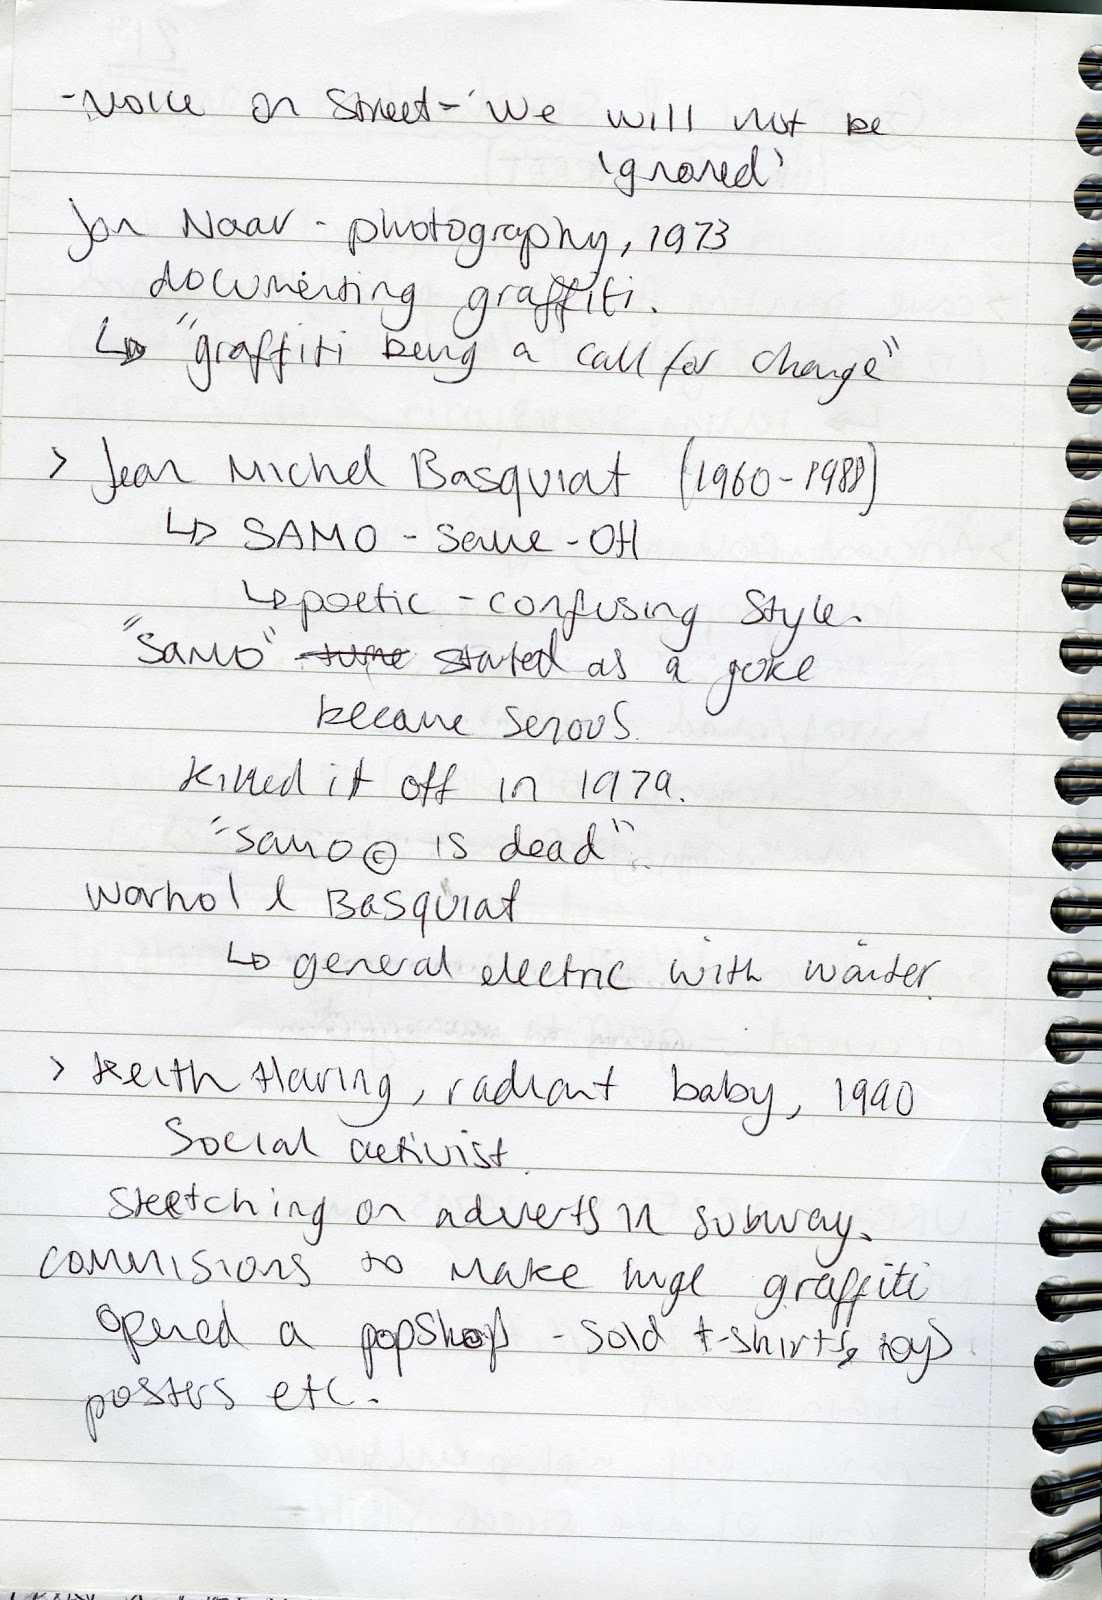 - Voice on Street - 'We will not be
ignored'
Jon Naar - photography, 1973
documenting graffiti.
↳ "graffiti being a call for change"
> Jean Michel Basquiat (1960-1988)
↳ SAMO - Same-OH
↳ poetic - confusing style.
"SAMO" started as a joke
became serious.
Killed it off in 1979.
"SAMO © is dead"
Warhol & Basquiat
↳ general electric with waiter.
> Keith Haring, radiant baby, 1990
Social activist.
Sketching on adverts in subway.
commisions to make huge graffiti
opened a popshop - sold t-shirts, toys
posters etc.